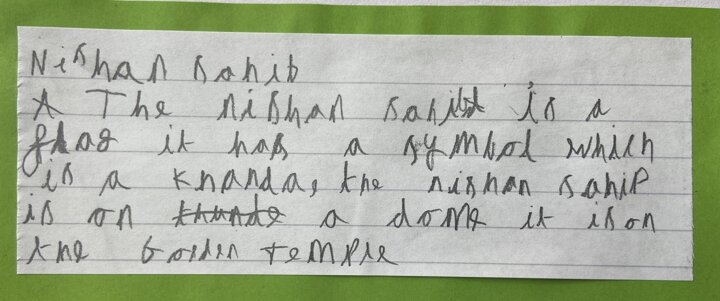 Nishan sahib
A The nishan sahib is a
flag it has a symbol which
is a Khanda, the nishan sahip
is on a dome it is on
the Golden Temple